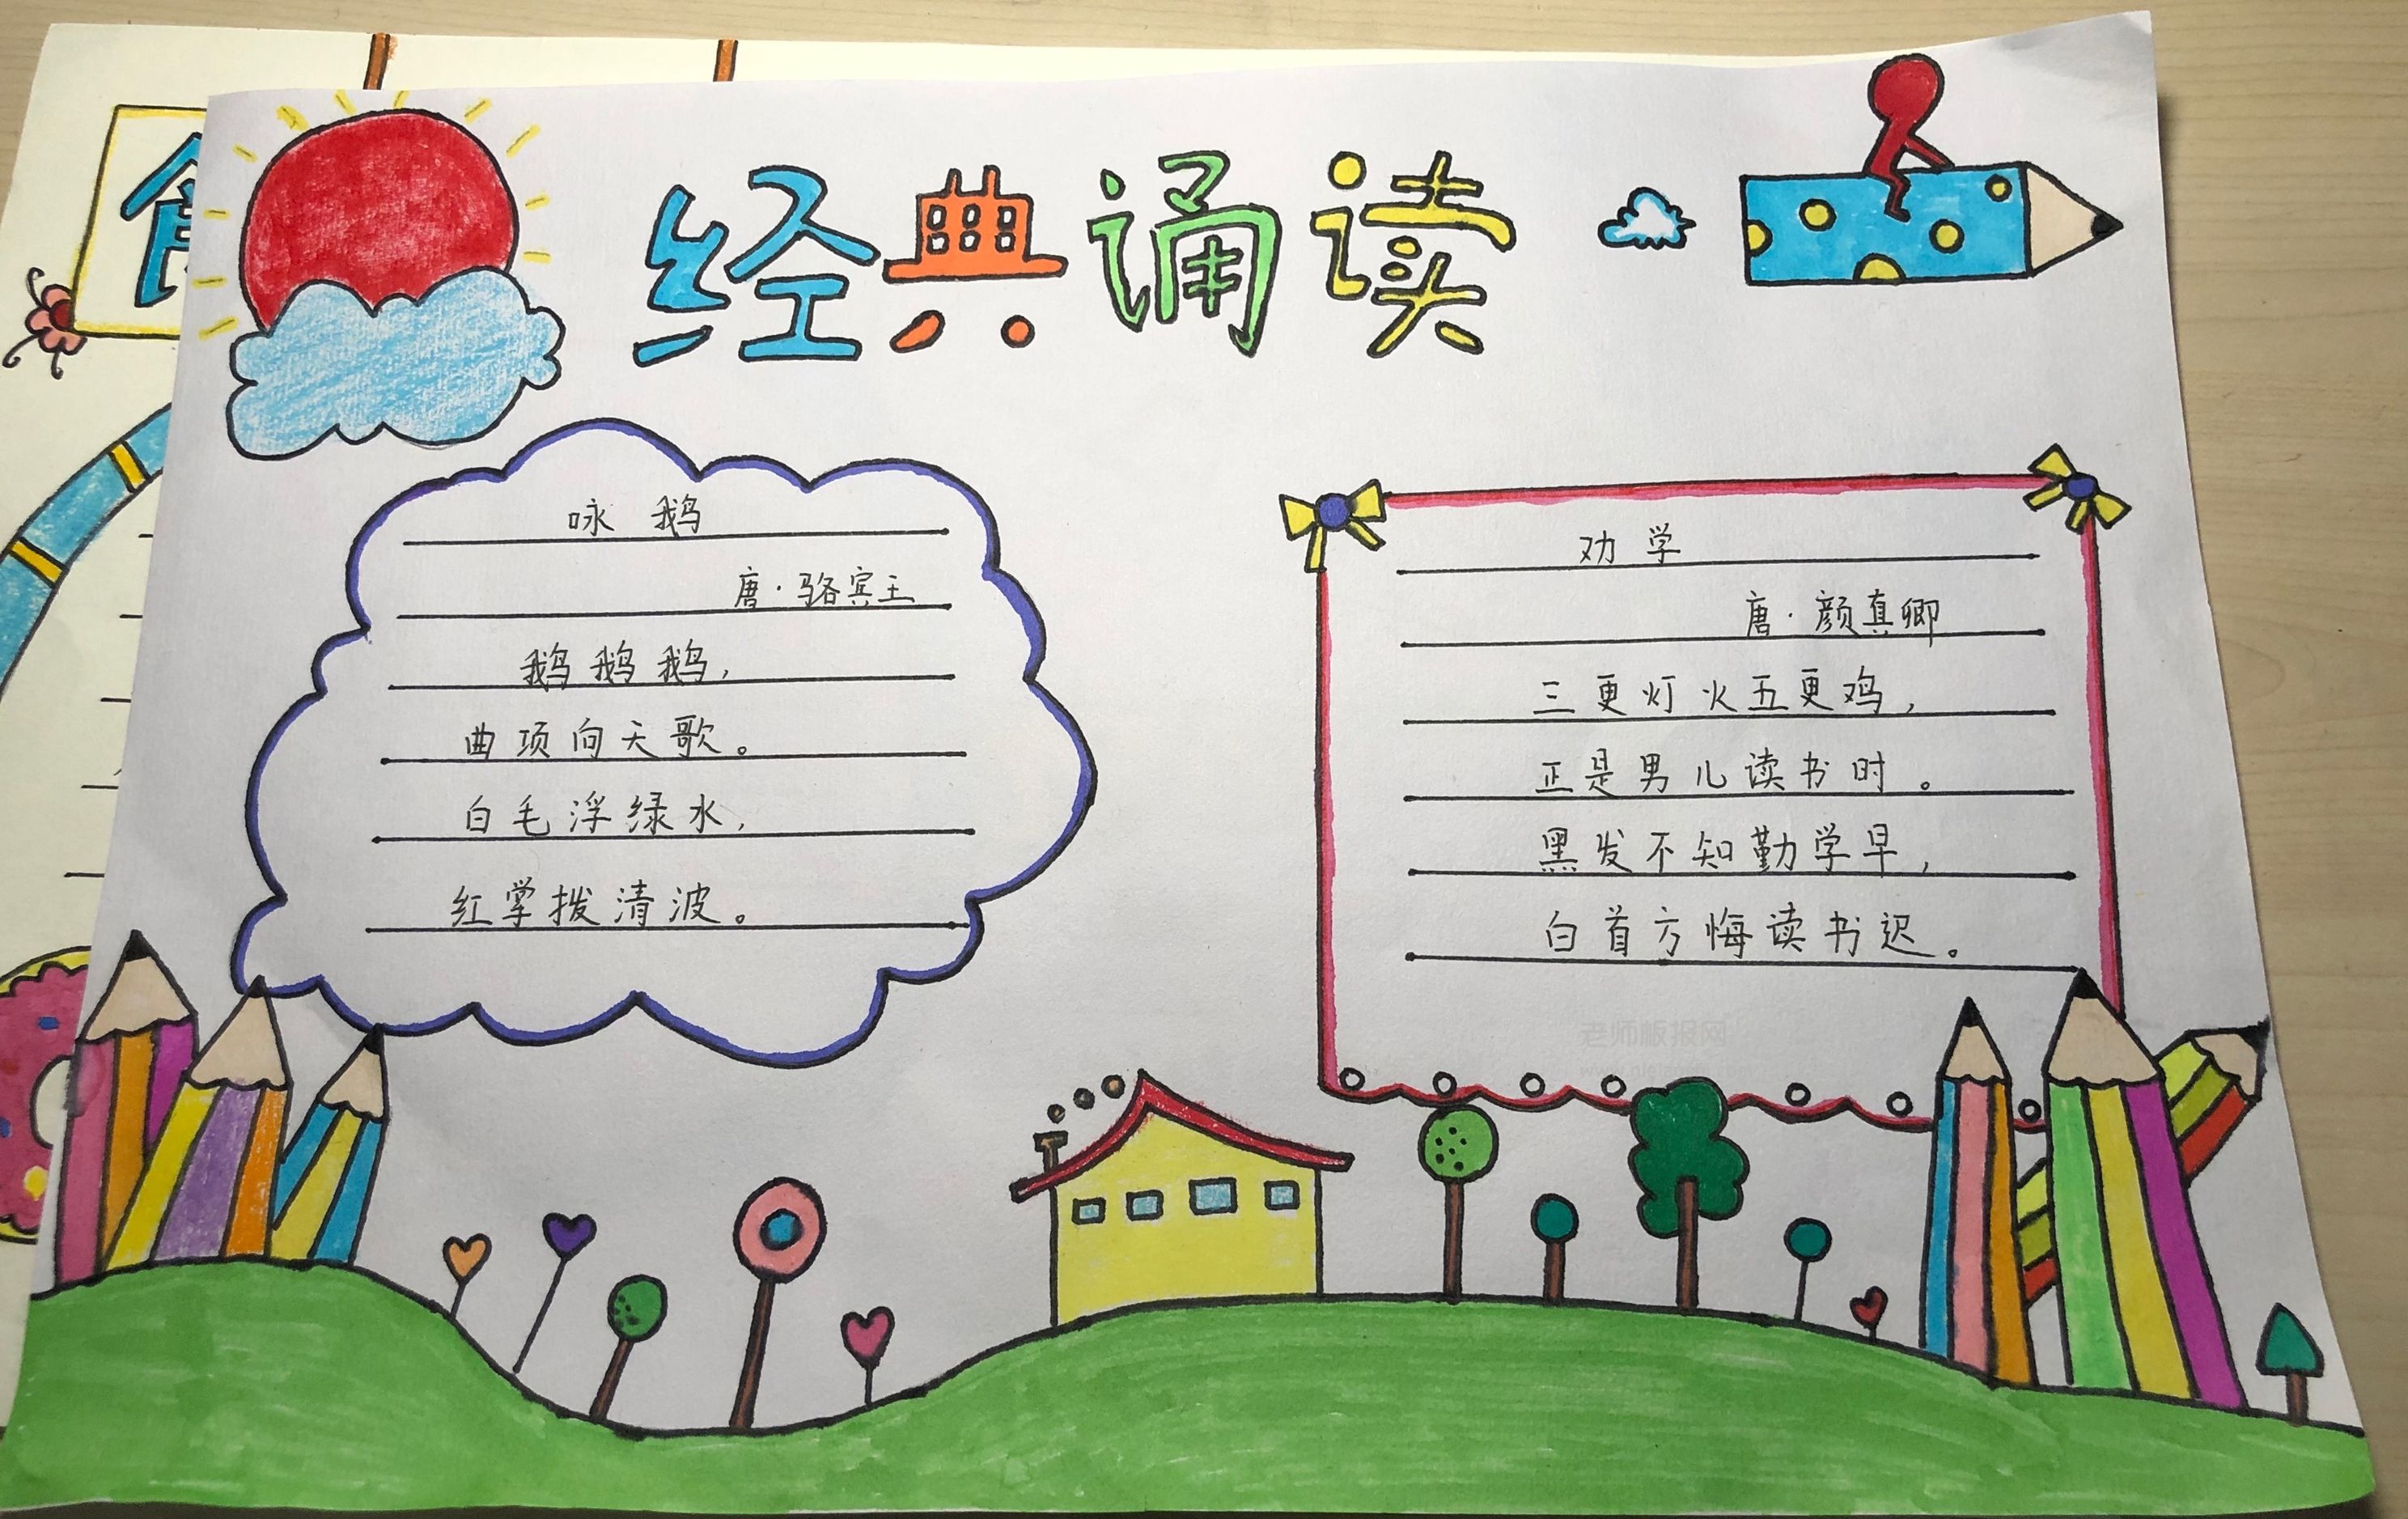 经典诵读
咏鹅
唐·骆宾王
鹅鹅鹅,
曲项向天歌。
白毛浮绿水,
红掌拨清波。
劝学
唐·颜真卿
三更灯火五更鸡,
正是男儿读书时。
黑发不知勤学早,
白首方悔读书迟。
老师板报网